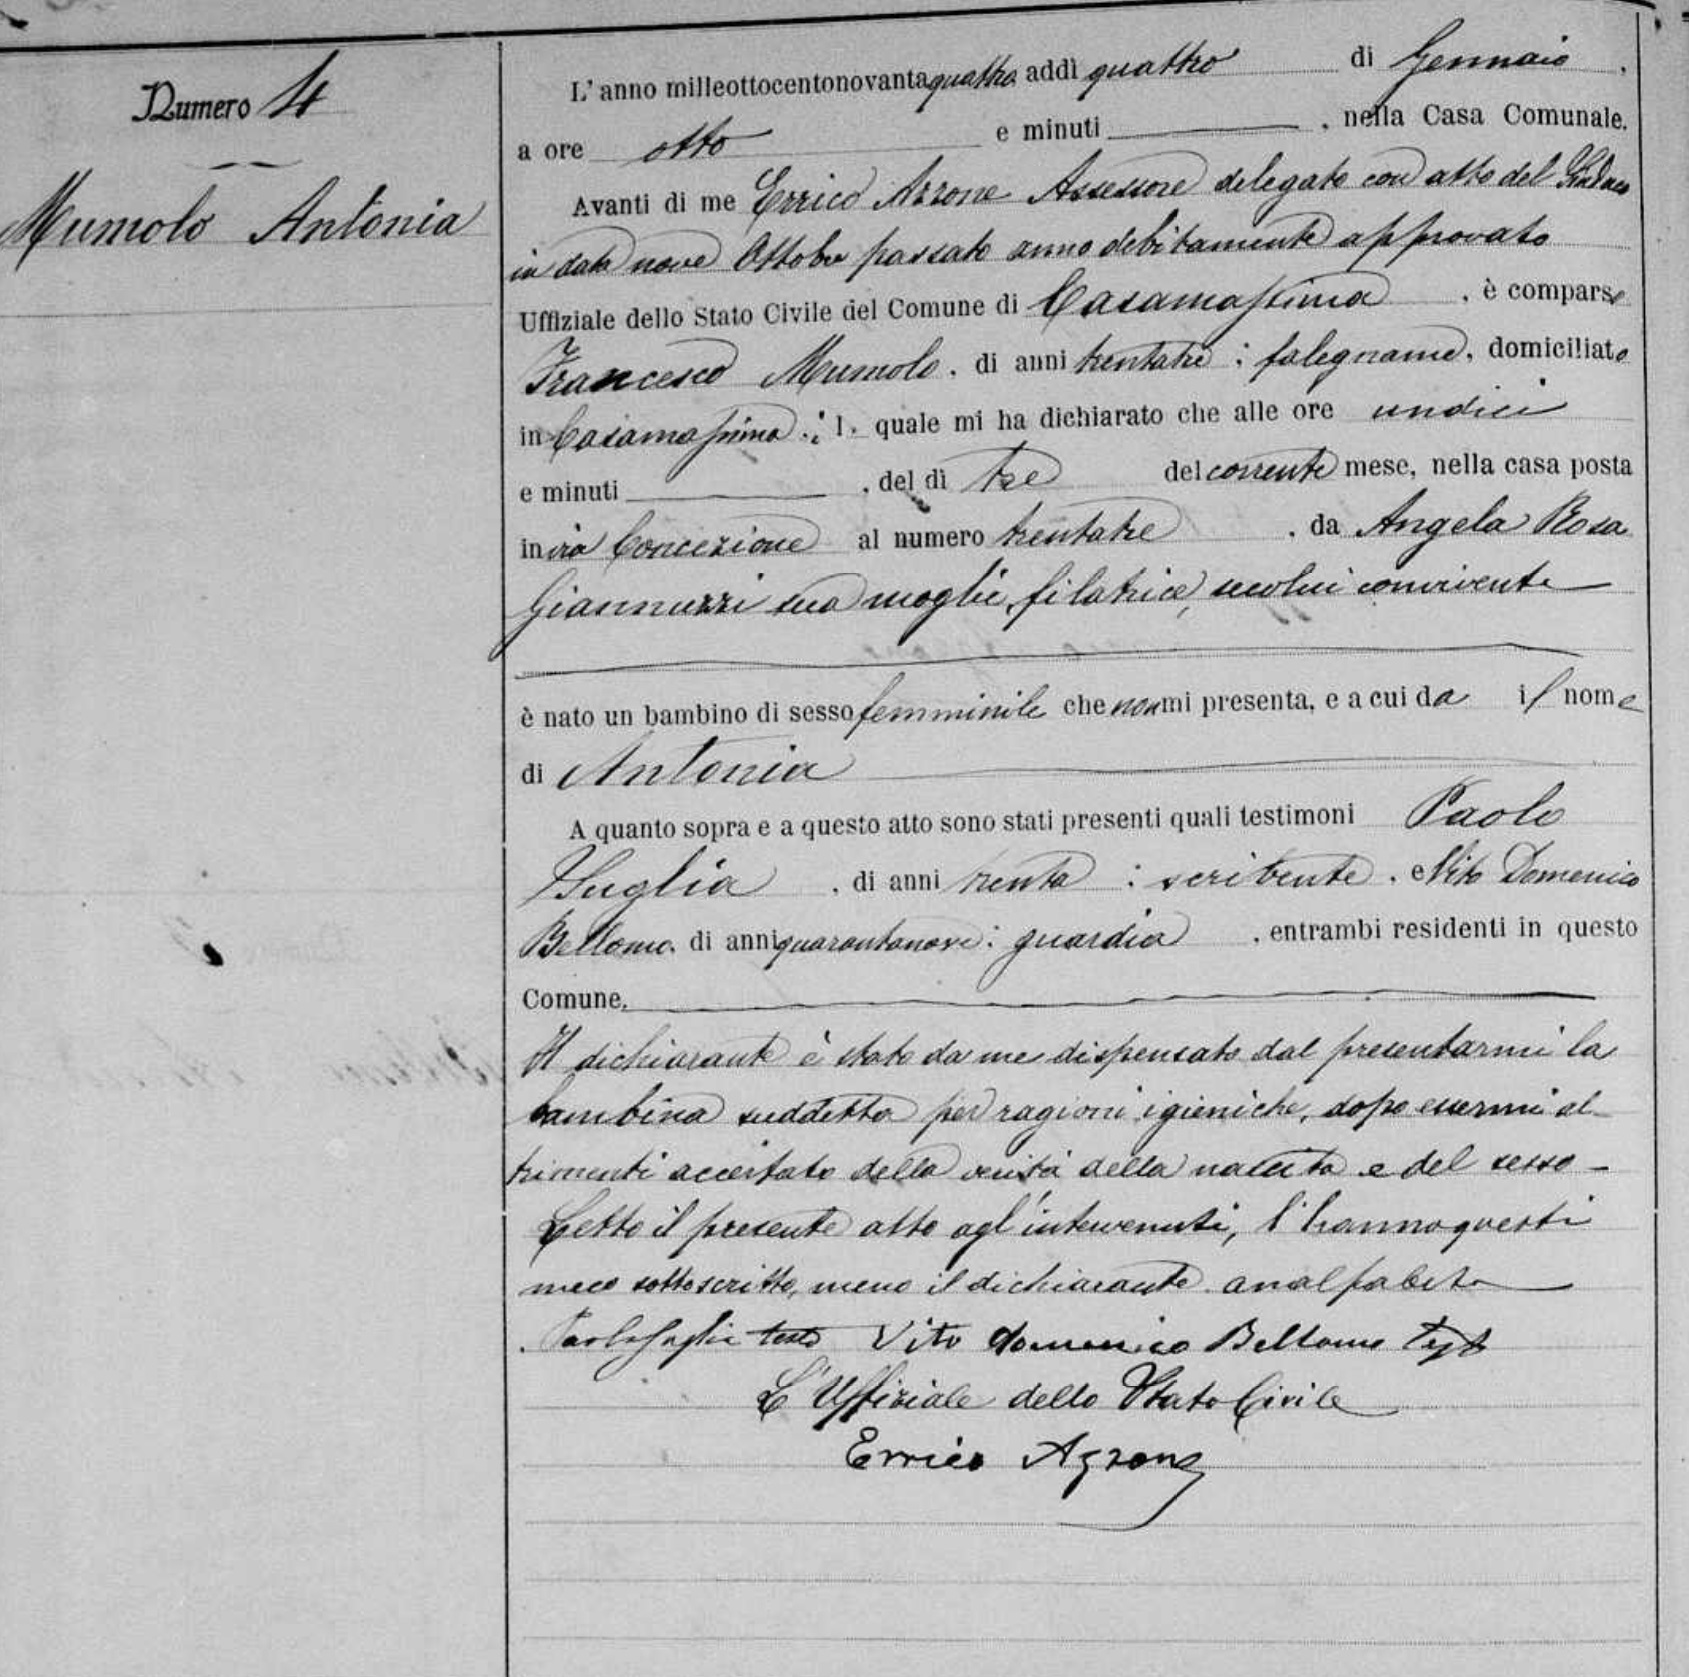 Numero 4
Mumolo Antonia
L'anno milleottocentonovantaquattro addì quattro di Gennaio,
a ore otto e minuti, nella Casa Comunale.
Avanti di me Errico Azzone Assessore delegato con atto del Sindaco
in data nove Ottobre passato anno debitamente approvato
Uffiziale dello Stato Civile del Comune di Casamassima, è comparso
Francesco Mumolo, di anni trentatre, falegname, domiciliato
in Casamassima, il quale mi ha dichiarato che alle ore undici
e minuti, del dì tre del corrente mese, nella casa posta
in via Concezione al numero trentatre, da Angela Rosa
Giannuzzi sua moglie, filatrice, secolui convivente
è nato un bambino di sesso femminile che non mi presenta, e a cui da il nome
di Antonia
A quanto sopra e a questo atto sono stati presenti quali testimoni Paolo
Suglia, di anni trenta, scribente, e Vito Domenico
Bellomo, di anni quarantanove, guardia, entrambi residenti in questo
Comune.
Il dichiarante è stato da me dispensato dal presentarmi la
bambina suddetta per ragioni igieniche, dopo essermi al-
trimenti accertato della verità della nascita e del sesso -
Letto il presente atto agl'intervenuti, l'hanno questi
meco sottoscritto, meno il dichiarante analfabeta
Paolo Suglia teste Vito domenico Bellomo
L'Uffiziale dello Stato Civile
Errico Azzone